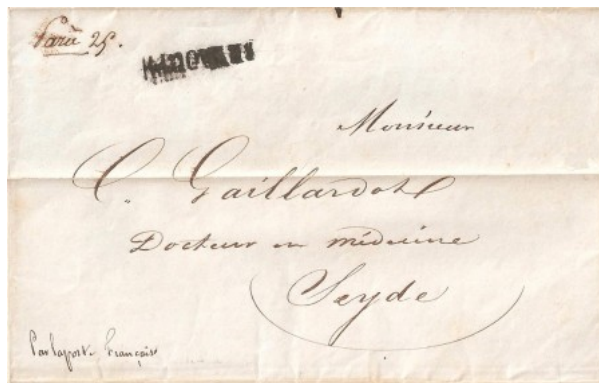 Para 25.
Monsieur
C. Gaillardot
Docteur en médecine
Seyde
Par la poste Française